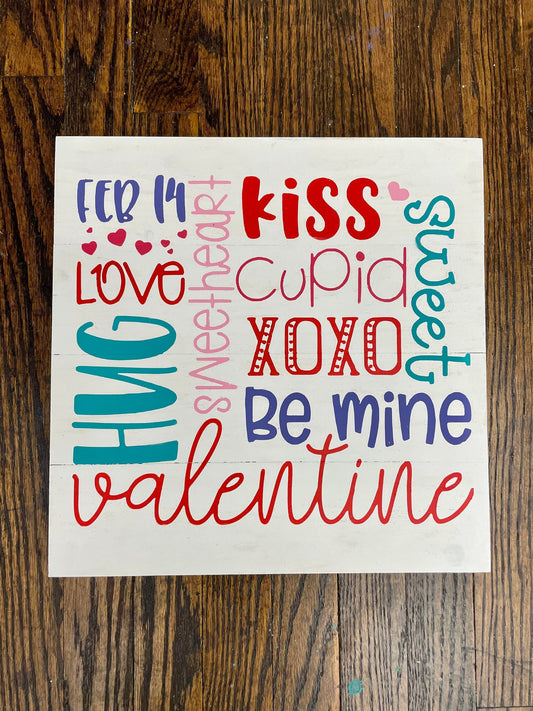 FEB 14
LOVE
HUG
sweetheart
kiss
cupid
XOXO
Be mine
sweet
valentine